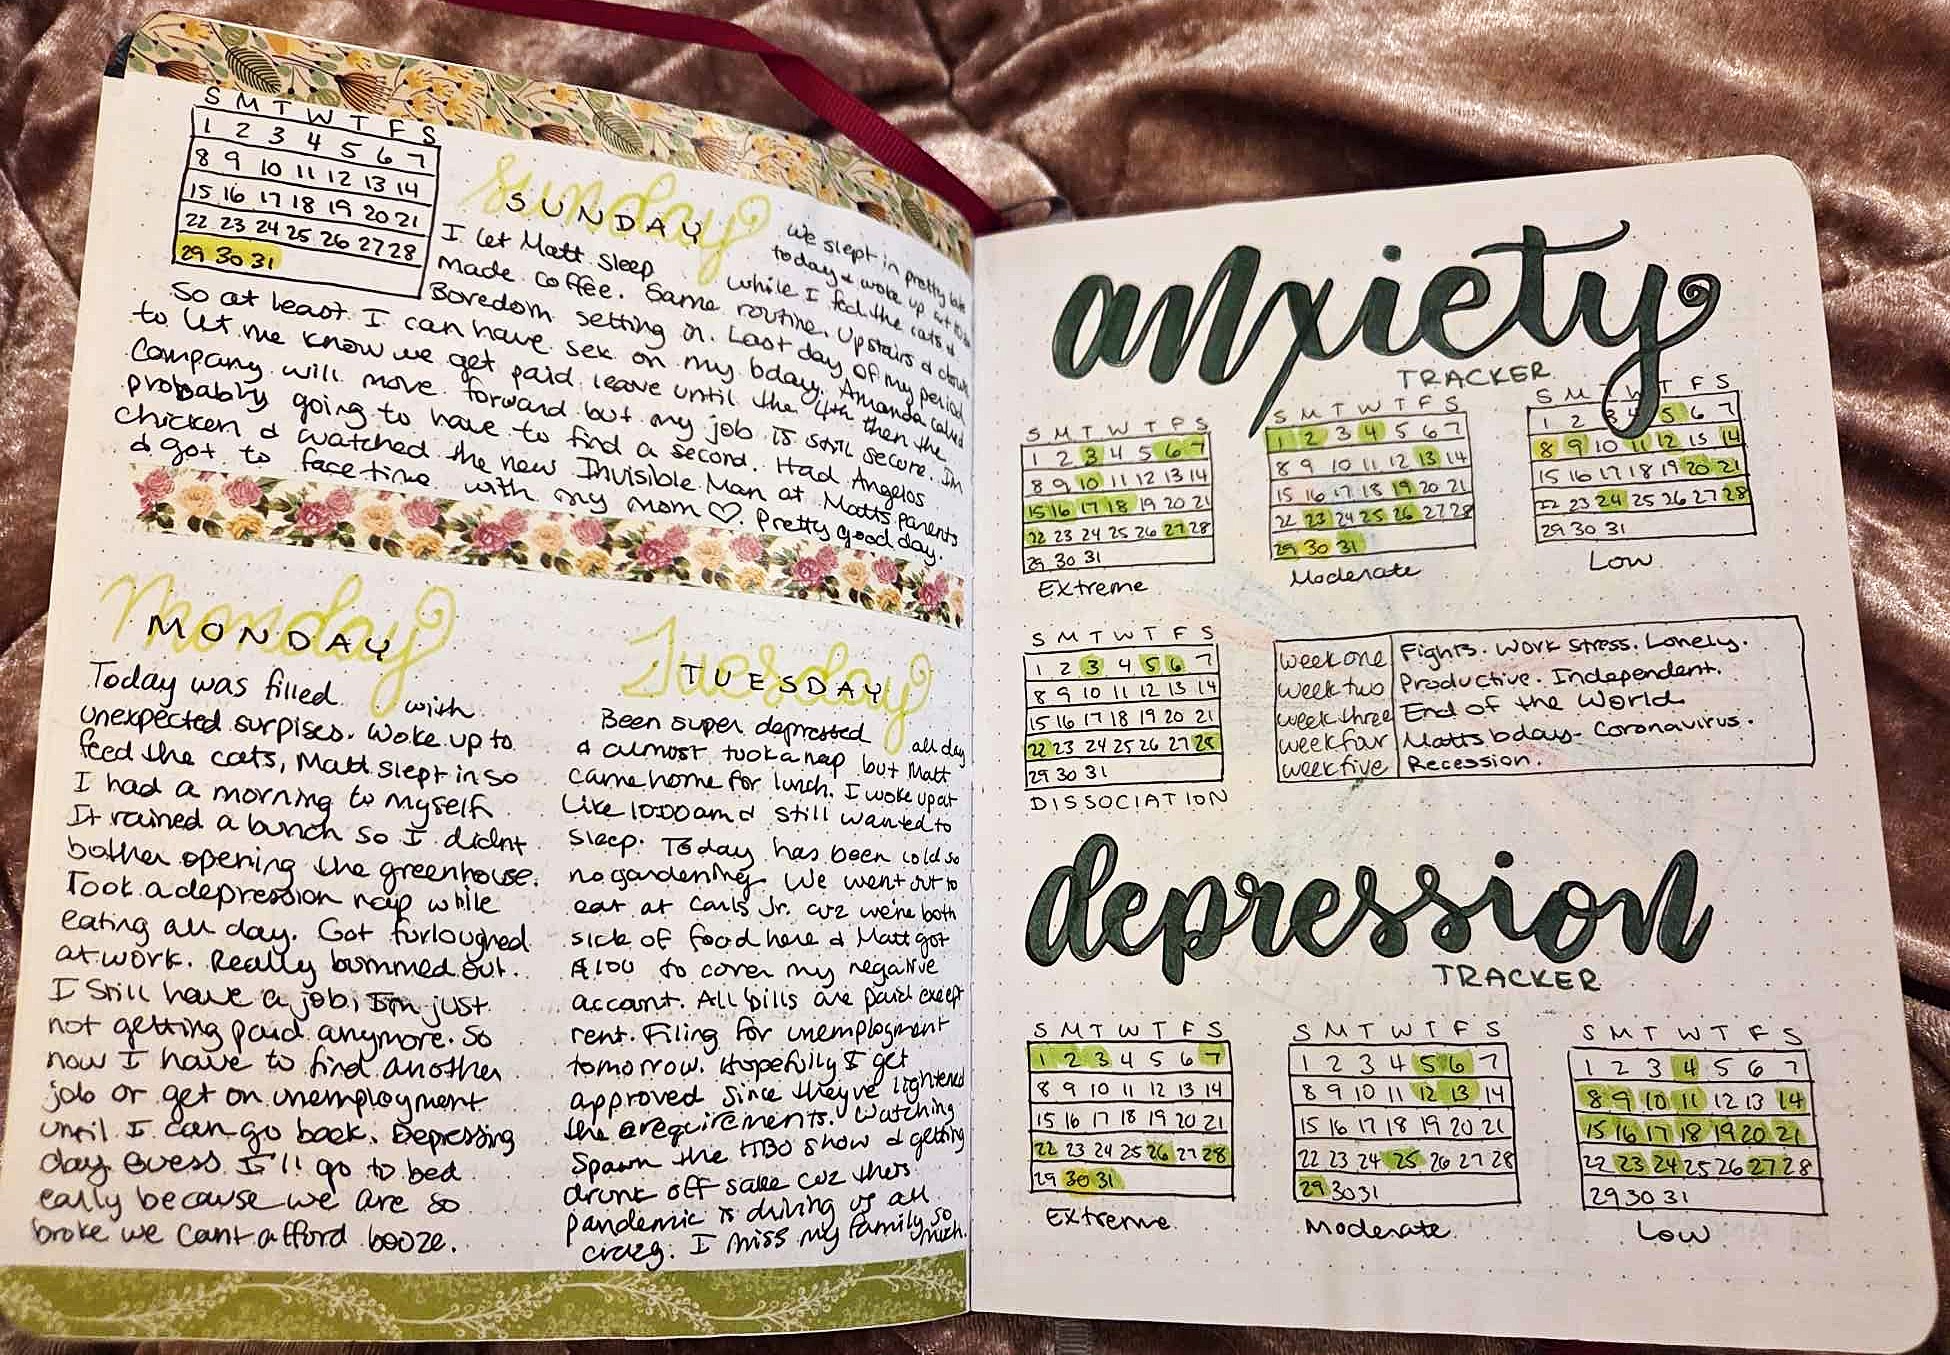 S M T W T F S
1 2 3 4 5 6 7
8 9 10 11 12 13 14
15 16 17 18 19 20 21
22 23 24 25 26 27 28
29 30 31
sunday
SUNDAY
We slept in pretty late
today & woke up at
I let Matt sleep while I fed the cats &
made coffee. Same routine. Upstairs & down
Boredom setting in. Last day of my period
So at least I can have sex on my bday. Amanda called
to let me know we get paid leave until the 4th then the
company will move forward but my job is still secure. Im
probably going to have to find a second. Had Angelos
chicken & watched the new Invisible Man at Matts parents
& got to facetime with my mom ♡. Pretty good day.
Monday
MONDAY
Today was filled with
unexpected surpises. Woke up to
feed the cats, Matt slept in so
I had a morning to myself
It rained a bunch so I didnt
bother opening the greenhouse.
Took a depression nap while
eating all day. Got furloughed
at work. Really bummed out.
I still have a job, Im just
not getting paid anymore. So
now I have to find another
job or get on unemployment
until I can go back. Depressing
day. Guess I'll go to bed
early because we are so
broke we cant afford booze.
Tuesday
TUESDAY
Been super depressed all day
& almost took a nap but Matt
came home for lunch. I woke up at
like 10:00am & still wanted to
sleep. Today has been cold so
no gardening. We went out to
eat at Carls Jr. cuz we're both
sick of food here & Matt got
$100 to cover my negative
account. All bills are paid except
rent. Filing for unemployment
tomorrow. Hopefully I get
approved since they've lightened
the requirements. Watching
Spawn the HBO show & getting
drunk off sake cuz this
pandemic is driving us all
crazy. I miss my family so much.
anxiety
TRACKER
S M T W T F S
1 2 3 4 5 6 7
8 9 10 11 12 13 14
15 16 17 18 19 20 21
22 23 24 25 26 27 28
29 30 31
Extreme
S M T W T F S
1 2 3 4 5 6 7
8 9 10 11 12 13 14
15 16 17 18 19 20 21
22 23 24 25 26 27 28
29 30 31
Moderate
S M T W T F S
1 2 3 4 5 6 7
8 9 10 11 12 13 14
15 16 17 18 19 20 21
22 23 24 25 26 27 28
29 30 31
Low
S M T W T F S
1 2 3 4 5 6 7
8 9 10 11 12 13 14
15 16 17 18 19 20 21
22 23 24 25 26 27 28
29 30 31
DISSOCIATION
week one Fights. Work stress. Lonely.
week two Productive. Independent.
week three End of the World
week four Matts bday - Coronavirus.
week five Recession.
depression
TRACKER
S M T W T F S
1 2 3 4 5 6 7
8 9 10 11 12 13 14
15 16 17 18 19 20 21
22 23 24 25 26 27 28
29 30 31
Extreme
S M T W T F S
1 2 3 4 5 6 7
8 9 10 11 12 13 14
15 16 17 18 19 20 21
22 23 24 25 26 27 28
29 30 31
Moderate
S M T W T F S
1 2 3 4 5 6 7
8 9 10 11 12 13 14
15 16 17 18 19 20 21
22 23 24 25 26 27 28
29 30 31
Low